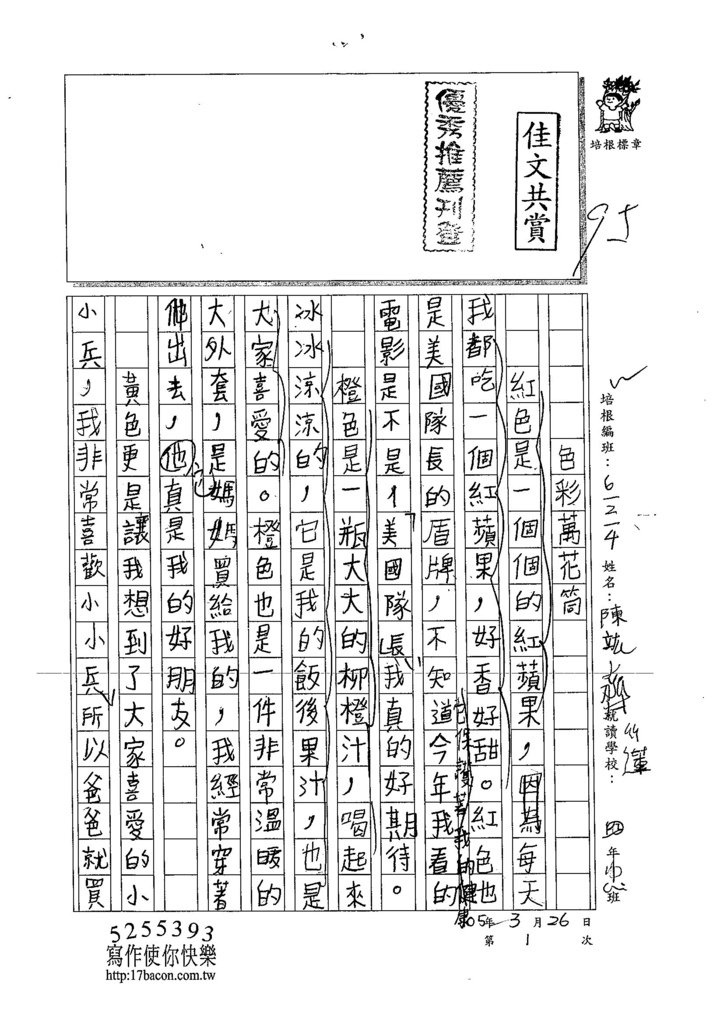 培根標章
佳文共賞
優秀推薦刊登
95
培根編班：6-2-4 姓名：陳 就讀學校： 四年 班
105年3月26日
第1次
色彩萬花筒
紅色是一個個的紅蘋果，因為每天
我都吃一個紅蘋果，好香好甜。紅色也
它保護著我的健康
是美國隊長的盾牌，不知道今年我看的
電影是不是，「美國隊長」我真的好期待。
橙色是一瓶大大的柳橙汁，喝起來
冰冰涼涼的，它是我的飯後果汁，也是
大家喜愛的。橙色也是一件非常溫暖的
大外套，是媽媽買給我的，我經常穿著
它
他出去，他真是我的好朋友。
黃色更是讓我想到了大家喜愛的小
小兵，我非常喜歡小小兵，所以爸爸就買
5255393
寫作使你快樂
http:17bacon.com.tw